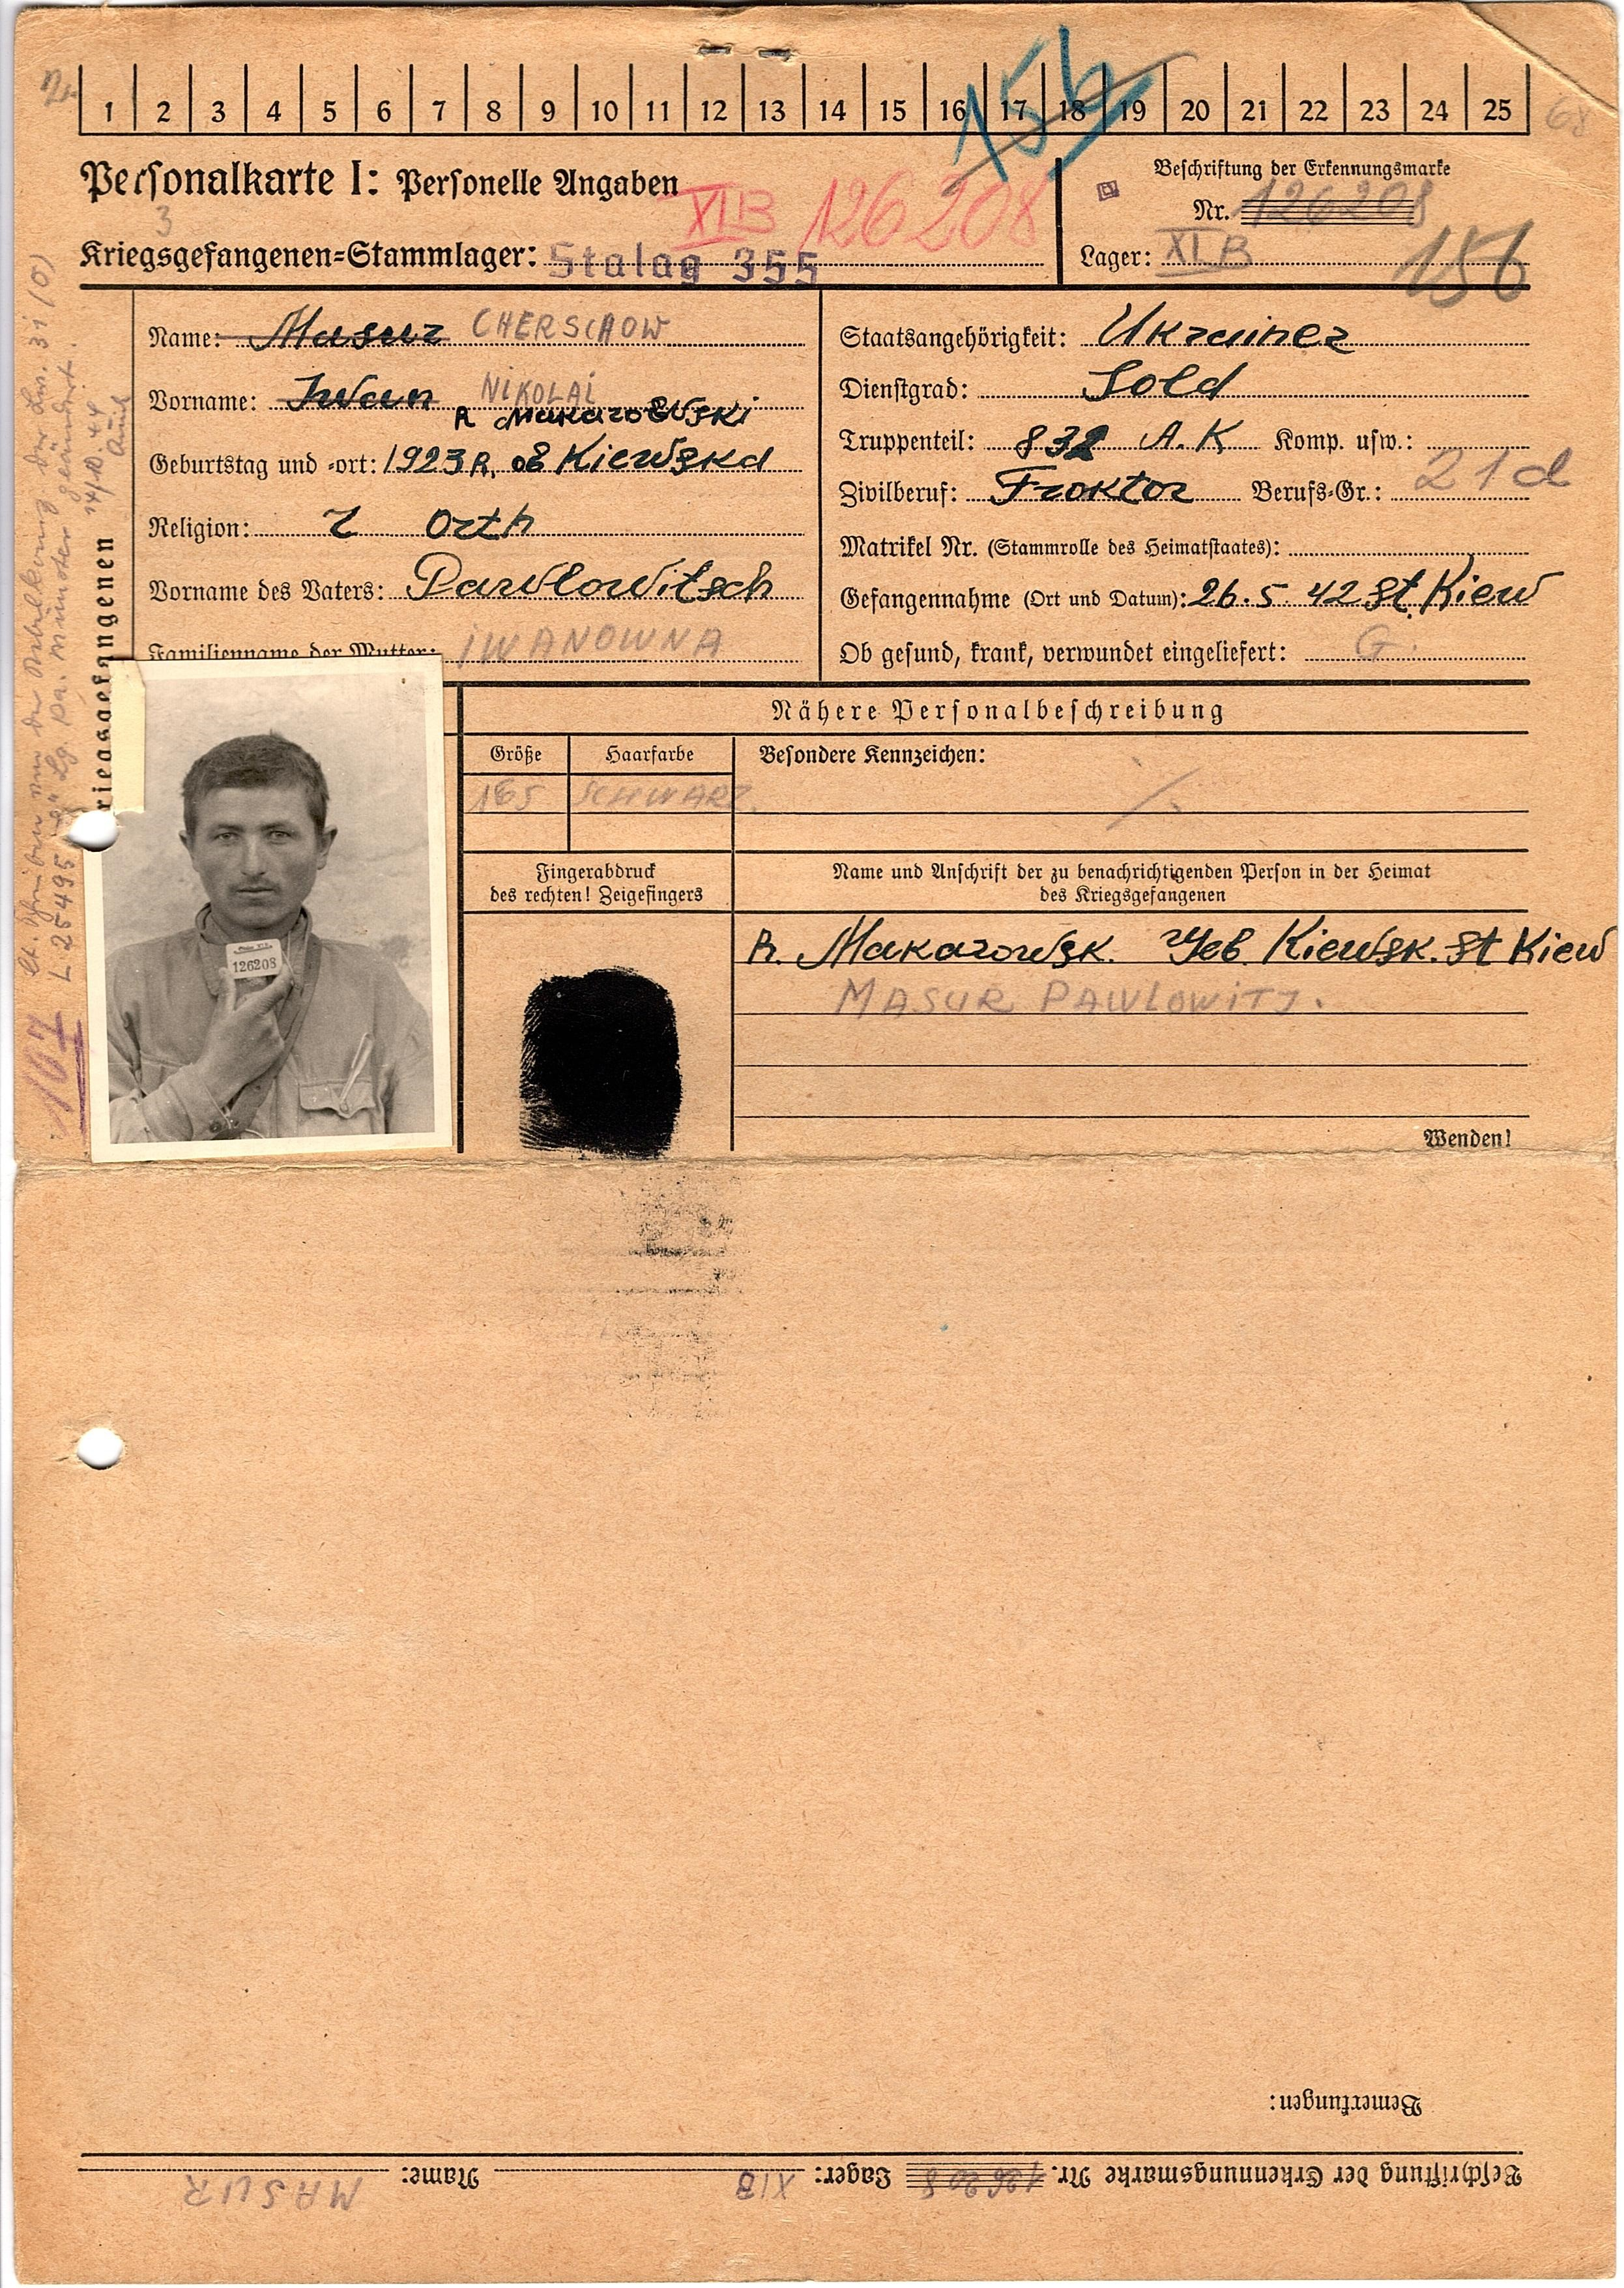 1 2 3 4 5 6 7 8 9 10 11 12 13 14 15 16 17 18 19 20 21 22 23 24 25
156
68
Personalkarte I: Personelle Angaben
Beschriftung der Erkennungsmarke
XI B 126208
Nr. 126208
3
Kriegsgefangenen=Stammlager: Stalag 355
Lager: XI B
156
Name: Masur CHERSCHOW
Vorname: Iwan NIKOLAI
R Makarowski
Geburtstag und =ort: 1923 R. ob Kiewska
Religion: Orth
Vorname des Vaters: Pawlowitsch
Familienname der Mutter: IWANOWNA
Staatsangehörigkeit: Ukrainer
Dienstgrad: Sold
Truppenteil: 832 A. K Komp. usw.:
Zivilberuf: Froktor Berufs=Gr.: 21d
Matrikel Nr. (Stammrolle des Heimatstaates):
Gefangennahme (Ort und Datum): 26. 5. 42 St Kiew
Ob gesund, krank, verwundet eingeliefert: G.
riegsgefangenen
geändert.
14/10. 44
L. 25495
167
126208
Nähere Personalbeschreibung
Größe Haarfarbe Besondere Kennzeichen:
165 SCHWARZ.
Fingerabdruck
des rechten! Zeigefingers
Name und Anschrift der zu benachrichtigenden Person in der Heimat
des Kriegsgefangenen
R. Makarowsk. Geb. Kiewsk. St Kiew
MASUR PAWLOWITJ.
Wenden!
Bemerkungen:
Beschriftung der Erkennungsmarke Nr. 126208 Lager: XIB Name: MASUR